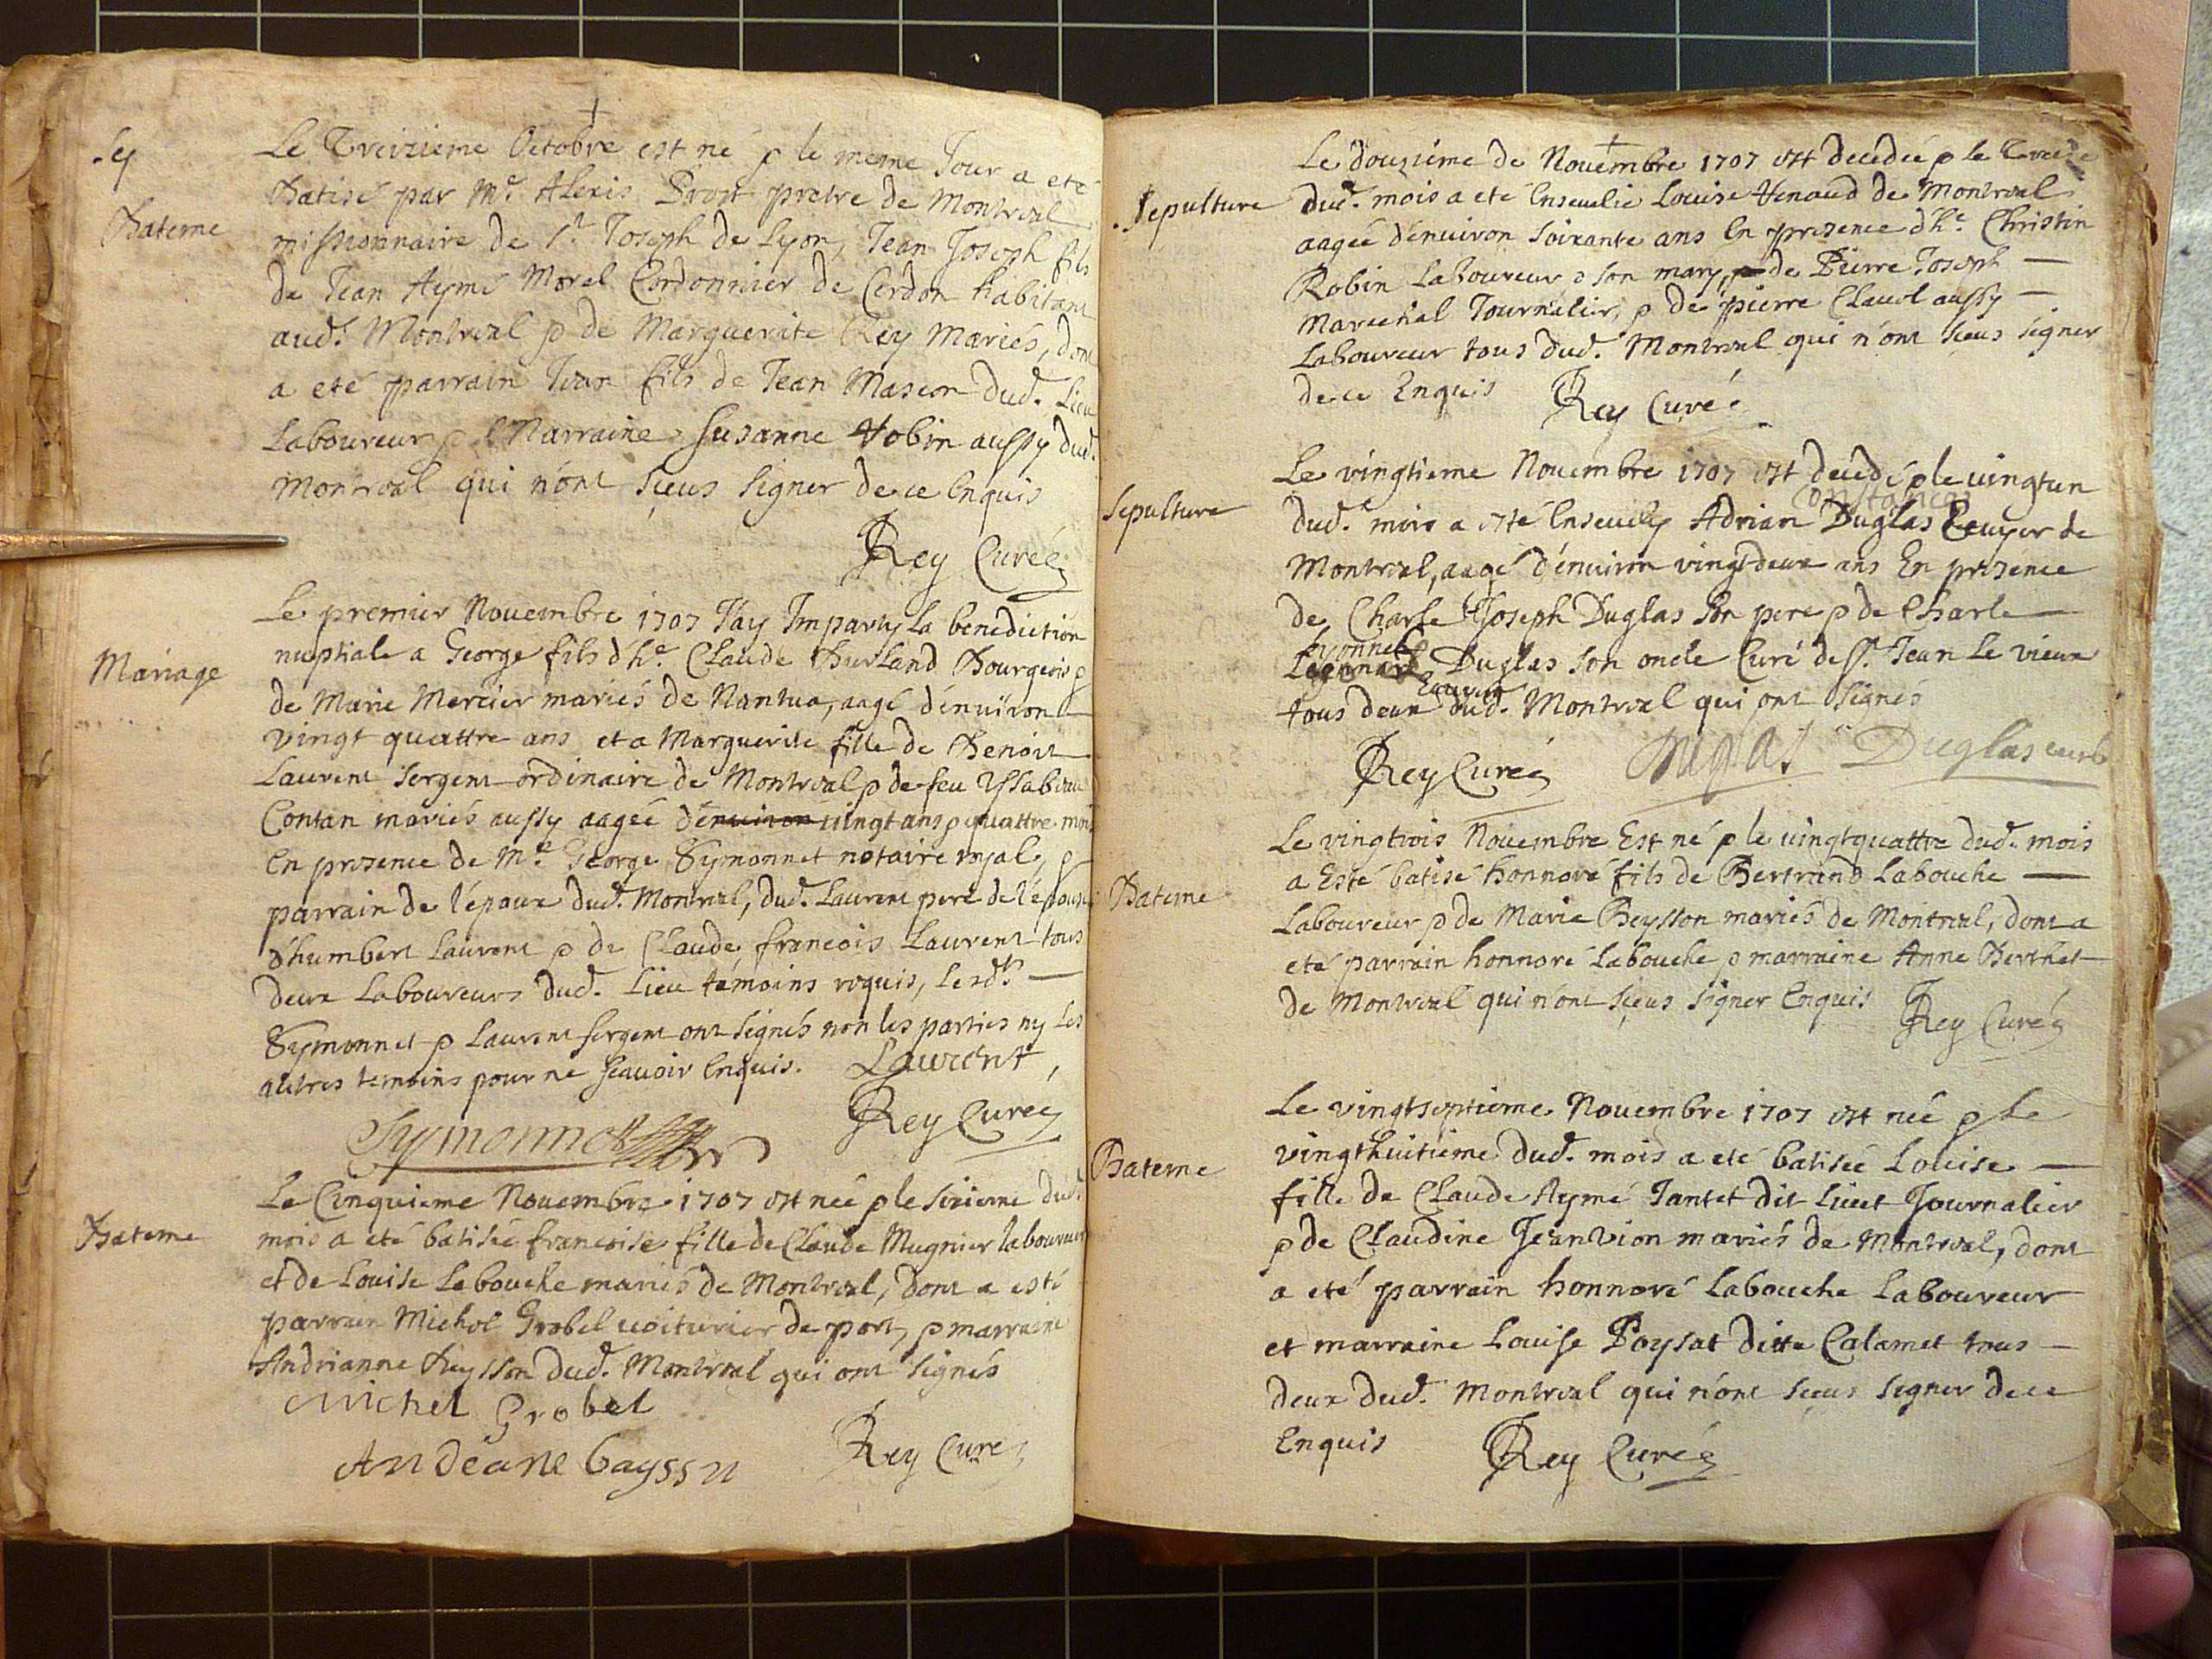 Sep
Le Treizieme Octobre est né & le meme Jour a eté
Bateme
Batisé par Mre. Alexis Prost pretre de Montreal
missionnaire de St. Joseph de Lyon, Jean Joseph fils
de Jean Aymé Morel Cordonnier de Cerdon habitant
aud. Montreal & de Marguerite Rey Mariés, dont
a eté parrain Jean fils de Jean Mascon dud. Lieu
Laboureur & Marraine Susanne Robin aussy dud.
Montreal qui n'ont sçeus signer de ce Enquis
Rey Curé
Mariage
Le premier Nouembre 1707 J'ay Imparty La benediction
nuptiale a George fils d'he. Claude Burland Bourgeois &
de Marie Mercier mariés de Nantua, aagé d'enuiron
vingt quattre ans et a Marguerite fille de Benoist
Laurent sergent ordinaire de Montreal & de feu Yssabeau
Contan mariés aussy aagée d'enuiron vingt ans & quattre mois
En presence de Mre. George Symonnet notaire royal, &
parrain de l'époux dud. Montreal, dud. Laurent pere de l'épouse
d'humbert Laurent & de Claude francois Laurent tous
deux Laboureurs dud. Lieu témoins requis, Lesdts.
Symonnet & Laurent sergent ont signés non les parties ny les
autres temoins pour ne sçauoir Enquis. Laurent,
Symonnet
Rey Curé
Bateme
Le Cinquieme Nouembre 1707 est née & le sixieme dud.
mois a eté batisée francoise fille de Claude Mugnier laboureur
et de Louise Labouche mariés de Montreal, dont a esté
parrain Michel Grobel uoiturier de port, & marraine
Andrianne Beysson dud. Montreal qui ont signés
Michel Grobel
Andéane bayssn
Rey Curé
Le douziéme de Nouembre 1707 est decedée & le Treize
Sepulture
dud. mois a eté Enseuelie Louise Venaud de Montreal
aagée d'enuiron soixante ans En presence d'he. Christin
Robin Laboureur son mary, & de Pierre Joseph
Marechal Journalier, & de pierre Clauel aussy
Laboureur tous dud. Montreal qui n'ont sçeus signer
de ce Enquis
Rey Curé
Sepulture
Le vingtieme Nouembre 1707 est decedé & le uingtun
Constancin
dud. mois a esté Enseuely Adrian Duglas Ecuyer de
Montreal, aagé d'enuiron vingtdeux ans En presence
de Charle Joseph Duglas son pere & de Charle
Lyonnel
Duglas son oncle Curé de St. Jean le vieux
Ecuyer
tous deux dud. Montreal qui ont signés
Rey Curé
Duglas
Duglas curé
Bateme
Le vingtrois Nouembre Est né & le uingtquattre dud. mois
a Esté batisé honnoré fils de Bertrand Labouche
Laboureur & de Marie Beysson mariés de Montreal, dont a
eté parrain honnoré Labouche & marraine Anne Berthet
de Montreal qui n'ont sçeus signer Enquis
Rey Curé
Bateme
Le vingtseptieme Nouembre 1707 est née & Le
vingthuitiéme dud. mois a eté batisée Louise
fille de Claude Aymé Jantet dit Liuet Journalier
& de Claudine Jeanvion mariés de Montreal, dont
a eté parrain honnoré Labouche Laboureur
et marraine Louise Poysat ditte Calamet tous
deux dud. Montreal qui n'ont sçeus signer de ce
Enquis
Rey Curé